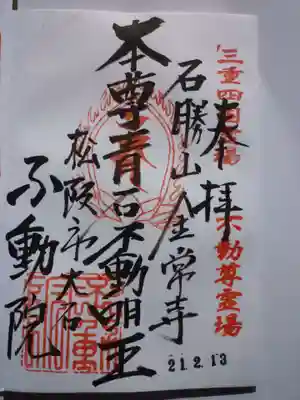 三重四国霊場
不動尊霊場
奉拝
石勝山金常寺
21.2.13
本尊青石不動明王
松阪市大石
不動院